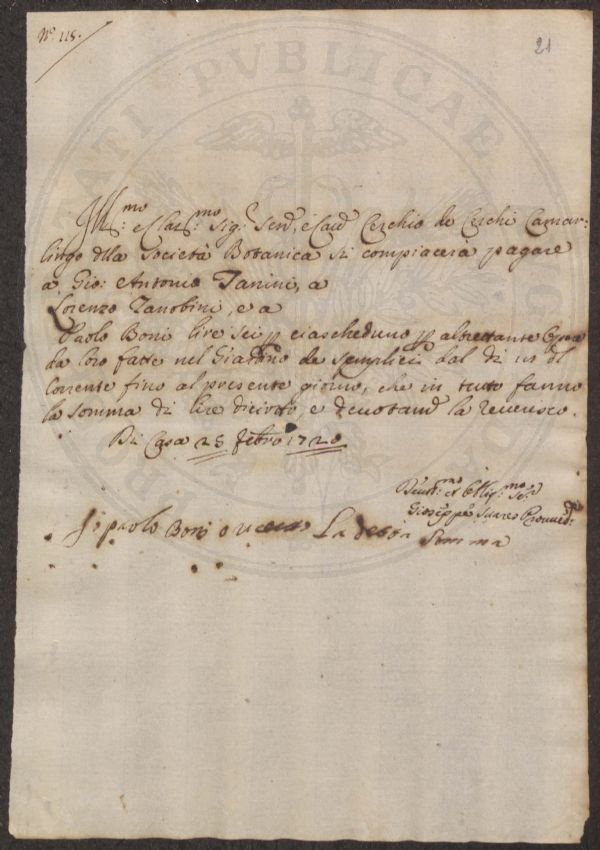 N.° 115.
21
Ill.mo e Clar.mo Sig.r Send. e Cav.r Cerchio de Cerchi Camar=
lingo dlla Società Botanica si compiacerà pagare
a Gio: Antonio Tanini, a
Lorenzo Zanobini, e a
Paolo Boni lire sei p ciascheduno p altrettante Opere
da loro fatte nel Giardino de Semplici dal dì del
Corrente fino al presente giorno, che in tutto fanno
la somma di lire diciotto, e devotam. la reverisco.
Di Casa 25 febro 1720
Devot.mo et Obblig.mo Se.
Giuseppe Suares Provved.
Io paolo Boni o riceuto La detta somma
BOTANICA
PVBLICAE